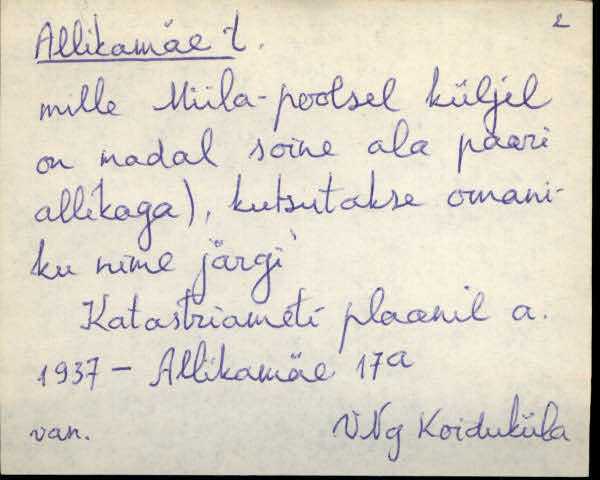 2
Allikamäe t.
mille Miila-poolsel küljel
on madal soine ala paari
allikaga), kutsutakse omani-
ku nime järgi
Katastriameti plaanil a.
1937 - Allikamäe 17a
van. VNg Koiduküla